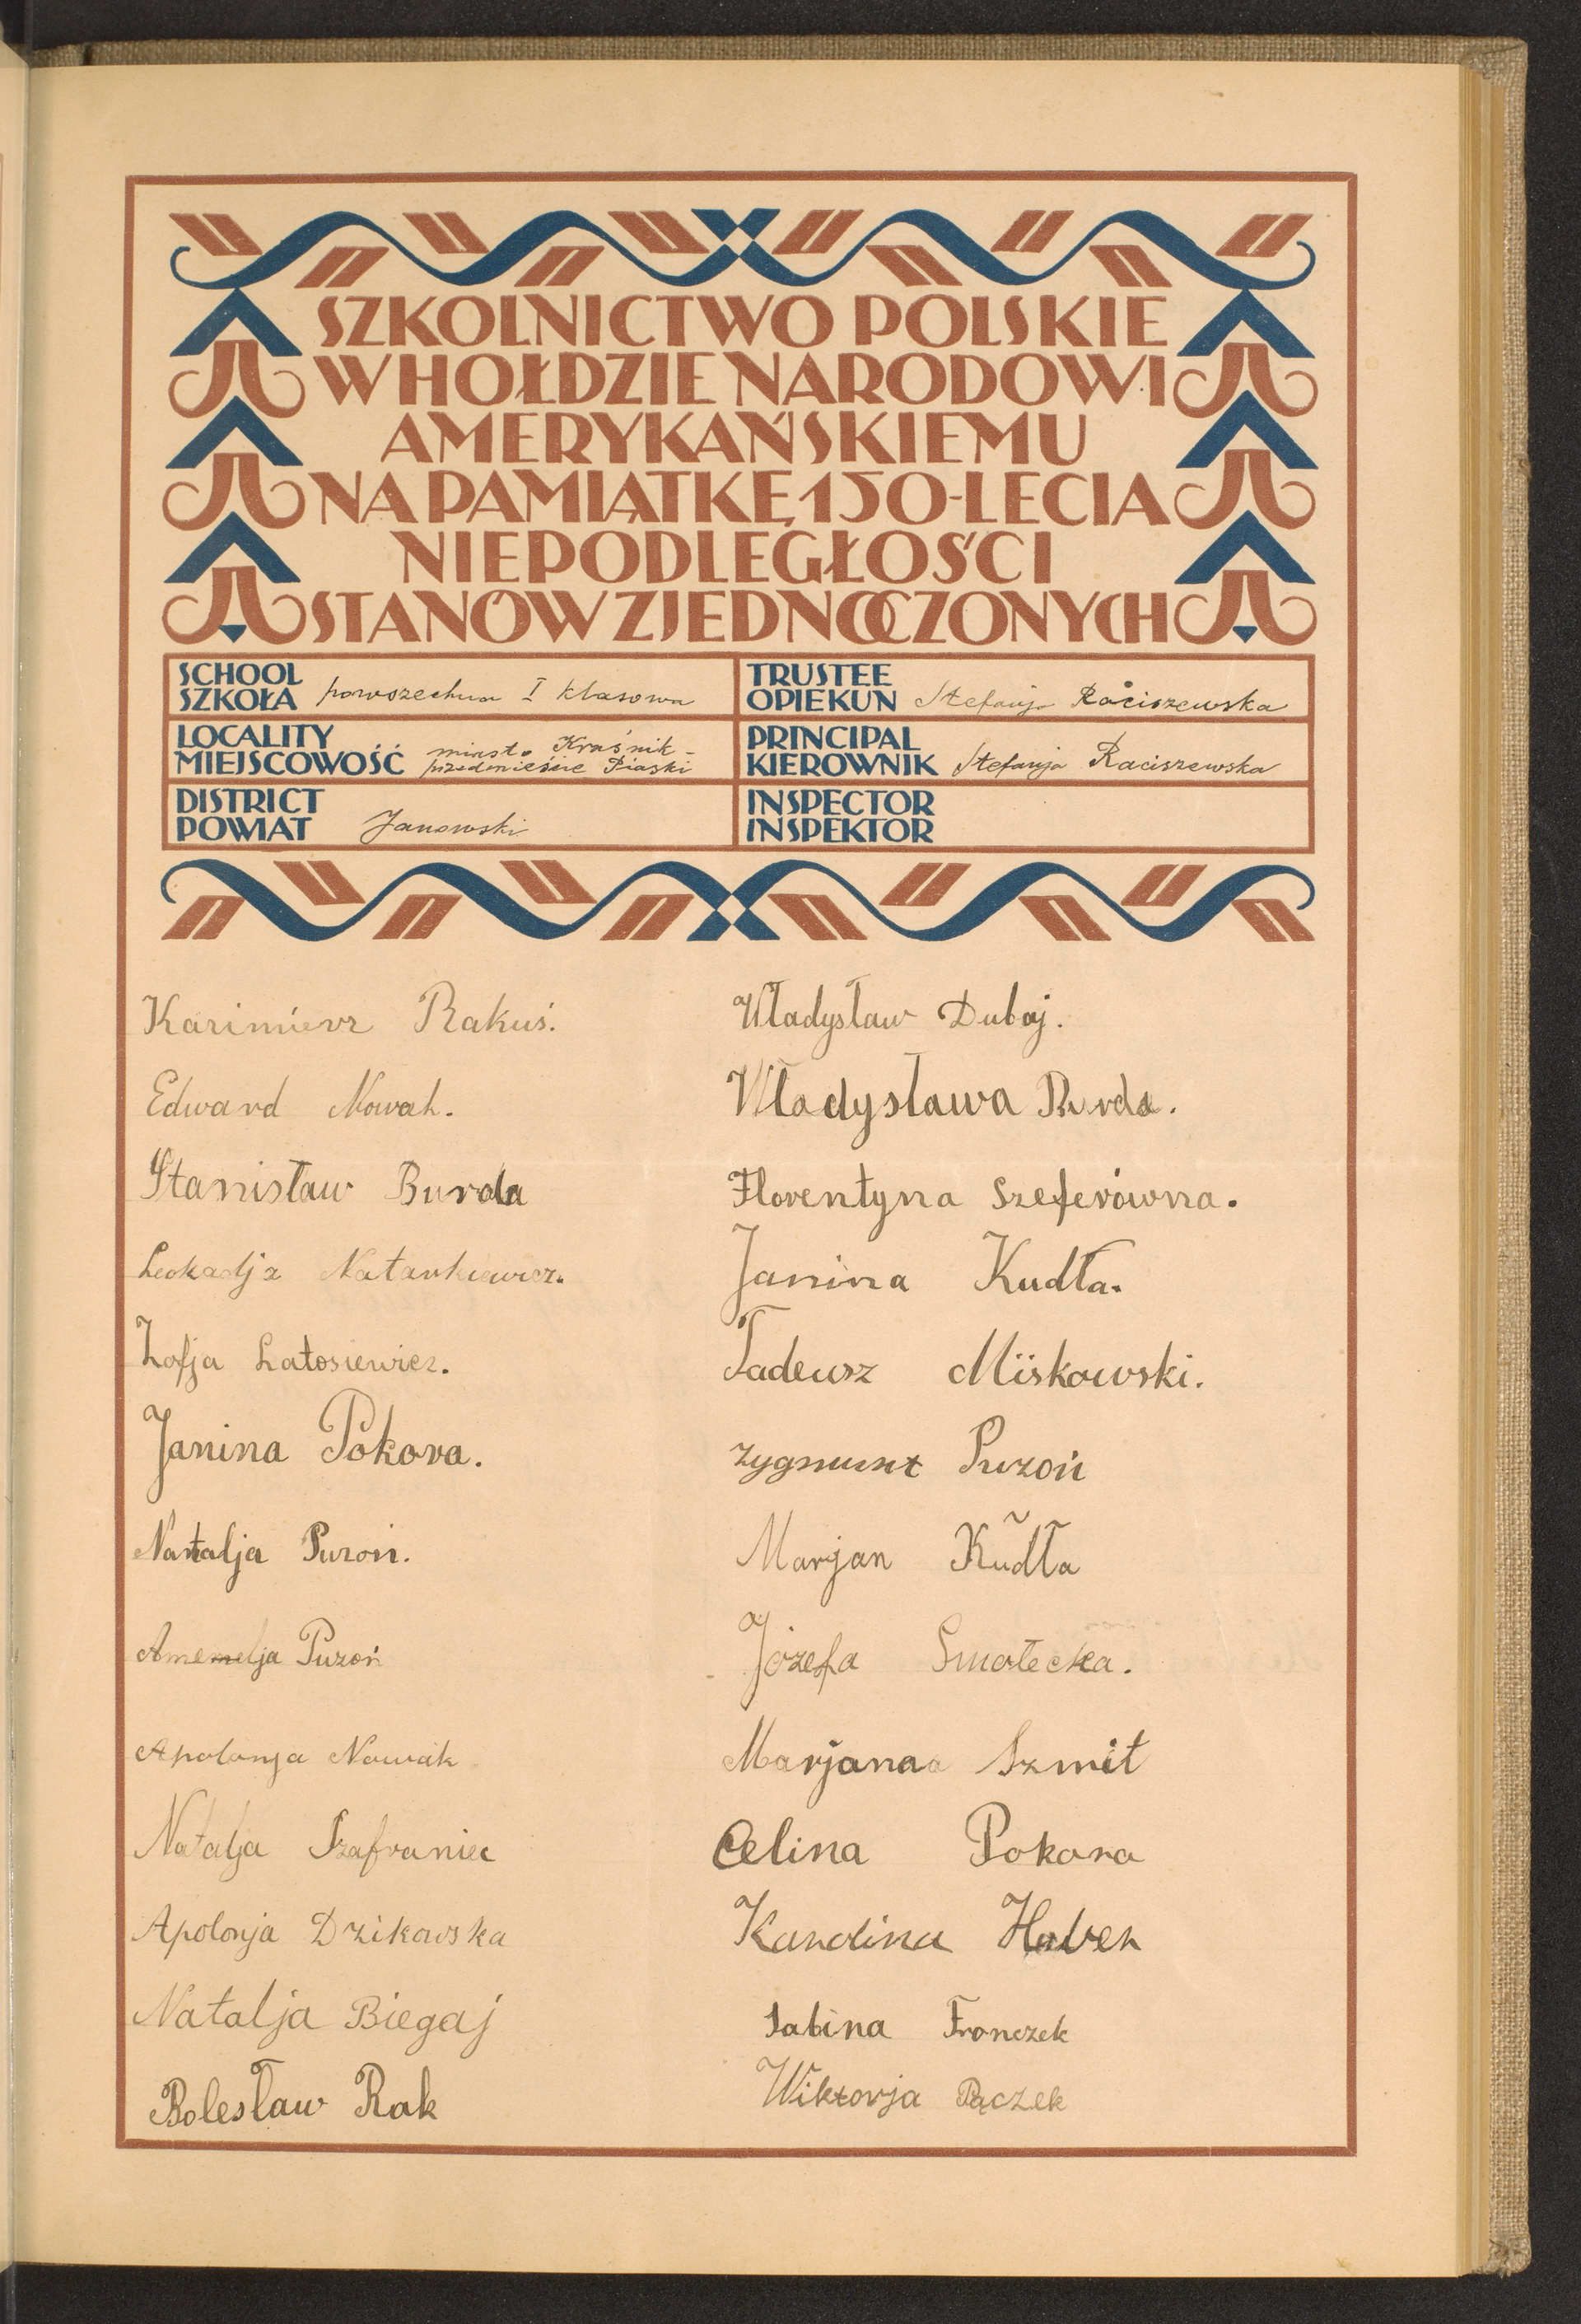 SZKOLNICTWO POLSKIE
W HOŁDZIE NARODOWI
AMERYKAŃSKIEMU
NA PAMIĄTKĘ 150-LECIA
NIEPODLEGŁOŚCI
STANÓW ZJEDNOCZONYCH
SCHOOL
SZKOŁA powszechna I klasowa
TRUSTEE
OPIEKUN Stefanja Raciszewska
LOCALITY
MIEJSCOWOŚĆ miasto Kraśnik -
przedmieście Piaski
PRINCIPAL
KIEROWNIK Stefanja Raciszewska
DISTRICT
POWIAT Janowski
INSPECTOR
INSPEKTOR
Kazimierz Rakuś.
Edward Nowak.
Stanisław Burda
Leokadja Natankiewicz.
Zofja Latosiewicz.
Janina Pokora.
Natalja Puzoń.
Amemelja Puzoń
Apolonja Nowak
Natalja Szafraniec
Apolonja Dzikowska
Natalja Biegaj
Bolesław Rak
Władysław Dubaj.
Władysława Burda.
Florentyna Szeferówna.
Janina Kudła.
Tadeusz Miśkowski.
Zygmunt Puzoń
Marjan Kudła
Józefa Smołecka.
Marjanna Szmit
Celina Pokora
Karolina Haber
Sabina Fronczek
Wiktorja Pączek